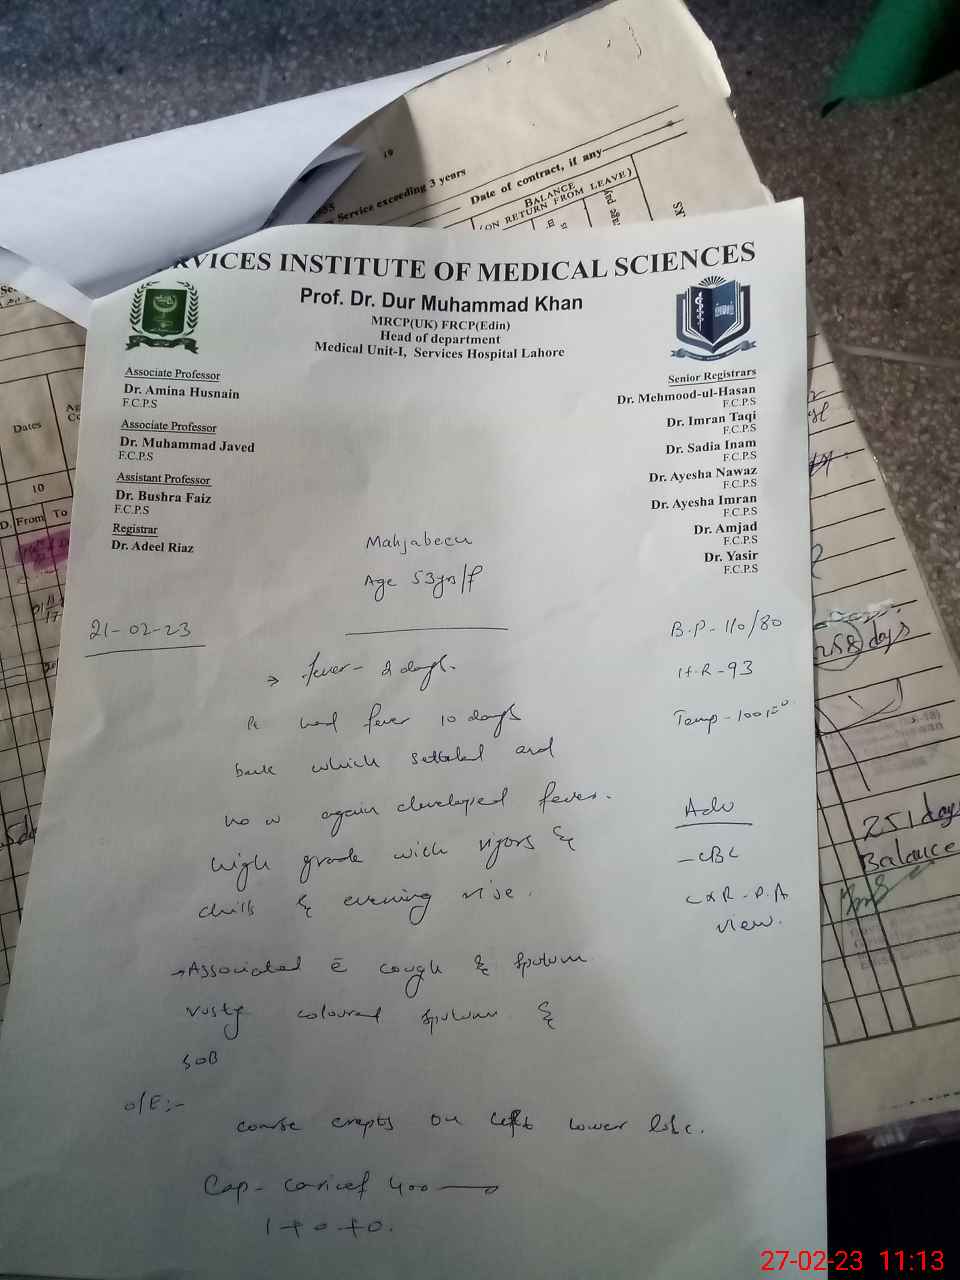 19
Service exceeding 3 years
Date of contract, if any
BALANCE
(ON RETURN FROM LEAVE)
SERVICES INSTITUTE OF MEDICAL SCIENCES
Prof. Dr. Dur Muhammad Khan
MRCP(UK) FRCP(Edin)
Head of department
Medical Unit-I, Services Hospital Lahore
Associate Professor
Dr. Amina Husnain
F.C.P.S
Associate Professor
Dr. Muhammad Javed
F.C.P.S
Assistant Professor
Dr. Bushra Faiz
F.C.P.S
Registrar
Dr. Adeel Riaz
Senior Registrars
Dr. Mehmood-ul-Hasan
F.C.P.S
Dr. Imran Taqi
F.C.P.S
Dr. Sadia Inam
F.C.P.S
Dr. Ayesha Nawaz
F.C.P.S
Dr. Ayesha Imran
F.C.P.S
Dr. Amjad
F.C.P.S
Dr. Yasir
F.C.P.S
Mahjabeen
Age 53yrs/f
21-02-23
B.P - 110/80
H-R - 93
Temp - 100
Adv
- CBC
CXR - P.A
view.
→ fever - 2 days.
Pt had fever 10 days
back which settled and
now again developed fever.
high grade with rigors &
chills & evening rise.
→ Associated c̄ cough & sputum
rusty coloured sputum &
SOB
O/E:-
coarse crepts on left lower lobe.
Cap - caricef 400
1+0+0.
Dates
10
From To
258 days
251 days
Balance
27-02-23 11:13